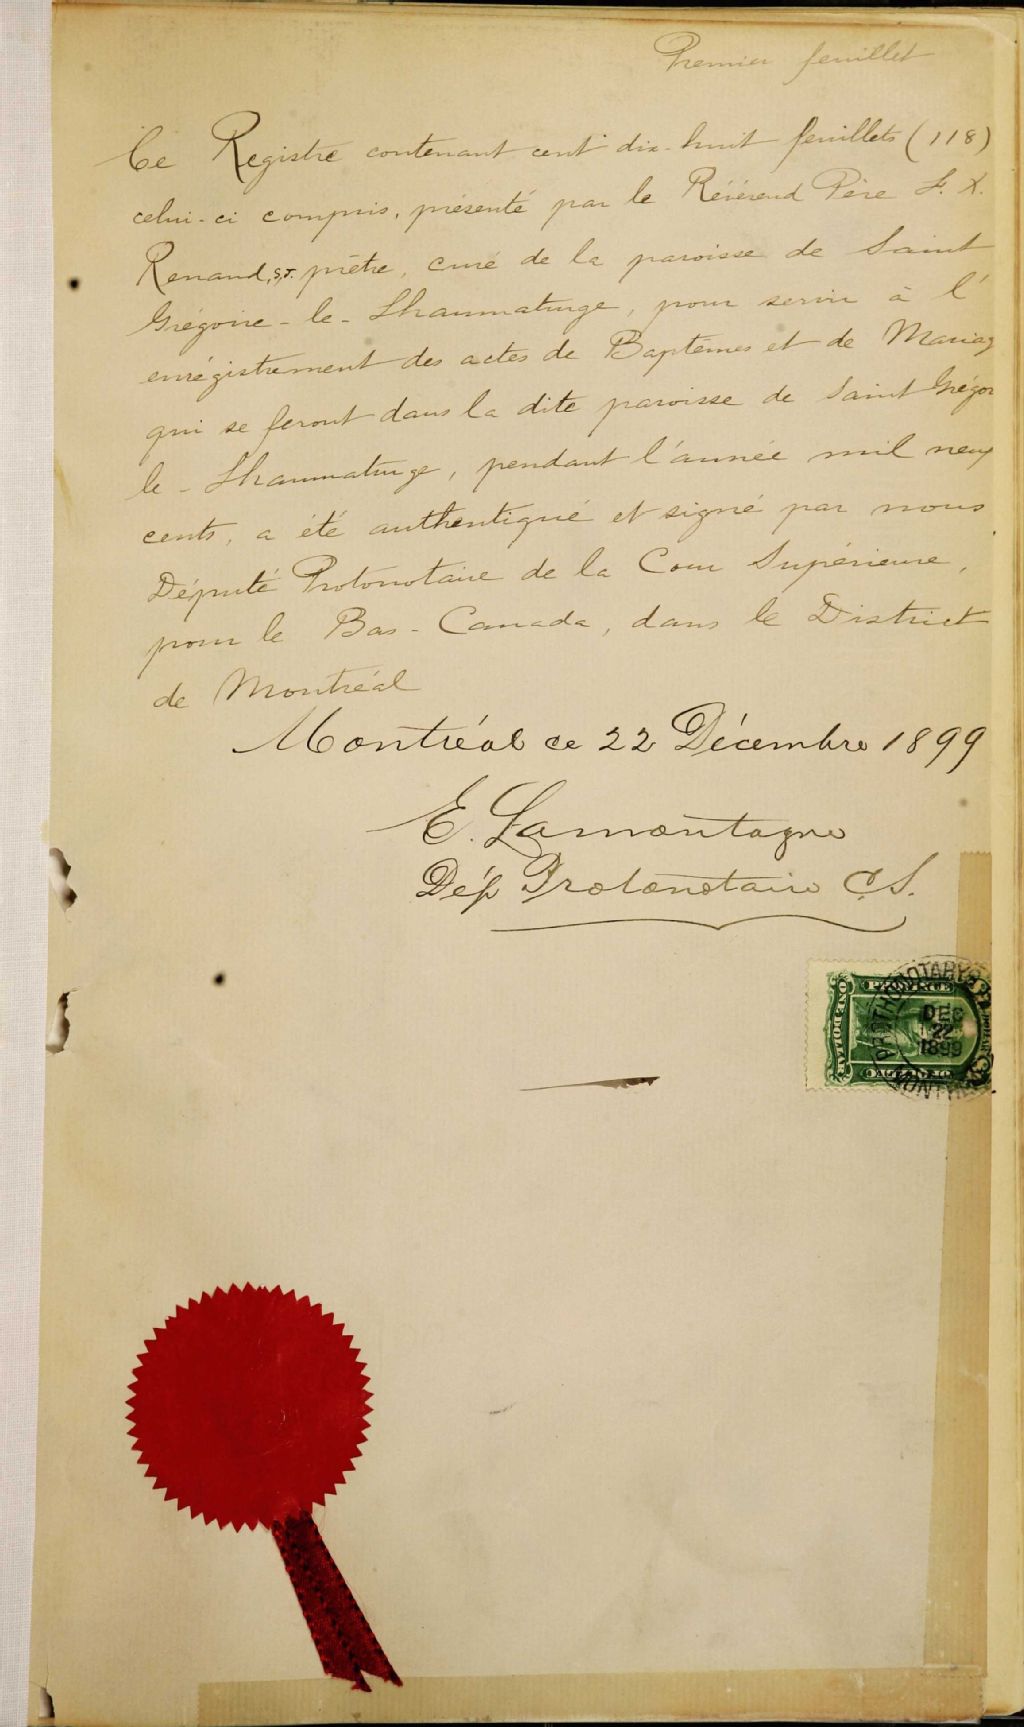 Premier feuillet
Ce Registre contenant cent dix-huit feuillets (118)
celui-ci compris, présenté par le Révérend Père F. X.
Renaud, S.J. prêtre, curé de la paroisse de Saint
Grégoire-le-Thaumaturge, pour servir à l'
enrégistrement des actes de Baptêmes et de Mariag
qui se feront dans la dite paroisse de Saint Grégoi
le-Thaumaturge, pendant l'année mil neuf
cents, a été authentiqué et signé par nous
Député Protonotaire de la Cour Supérieure,
pour le Bas-Canada, dans le District
de Montréal
Montréal ce 22 Décembre 1899
E. Lamontagne
Dép Protonotaire C.S.
PROTHONOTARY'S
DEC
22
1899
MONTRE
ONE DOLLAR